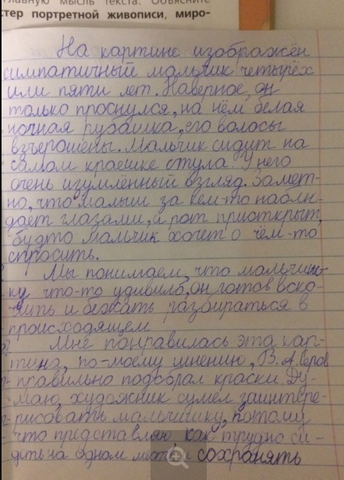 главную мысль текста. Объясните
стер портретной живописи, миро-
На картине изображён
симпатичный мальчик четырёх
или пяти лет. Наверное, он
только проснулся, на нём белая
ночная рубашка, его волосы
взъерошены. Мальчик сидит на
самом краешке стула. У него
очень изумлённый взгляд. Замет-
но, что малыш за кем-то наблю-
дает глазами, а рот приоткрыт,
будто мальчик хочет о чём-то
спросить.
Мы понимаем, что мальчиш-
ку что-то удивило, он готов вско-
чить и бежать разбираться в
происходящем
Мне понравилась эта кар-
тина, по-моему мнению, В. А. Серов
правильно подобрал краски. Ду-
маю, художник сумел заинтере-
рисовать мальчишку, потому
что представляю, как трудно си-
деть на одном месте, сохранять